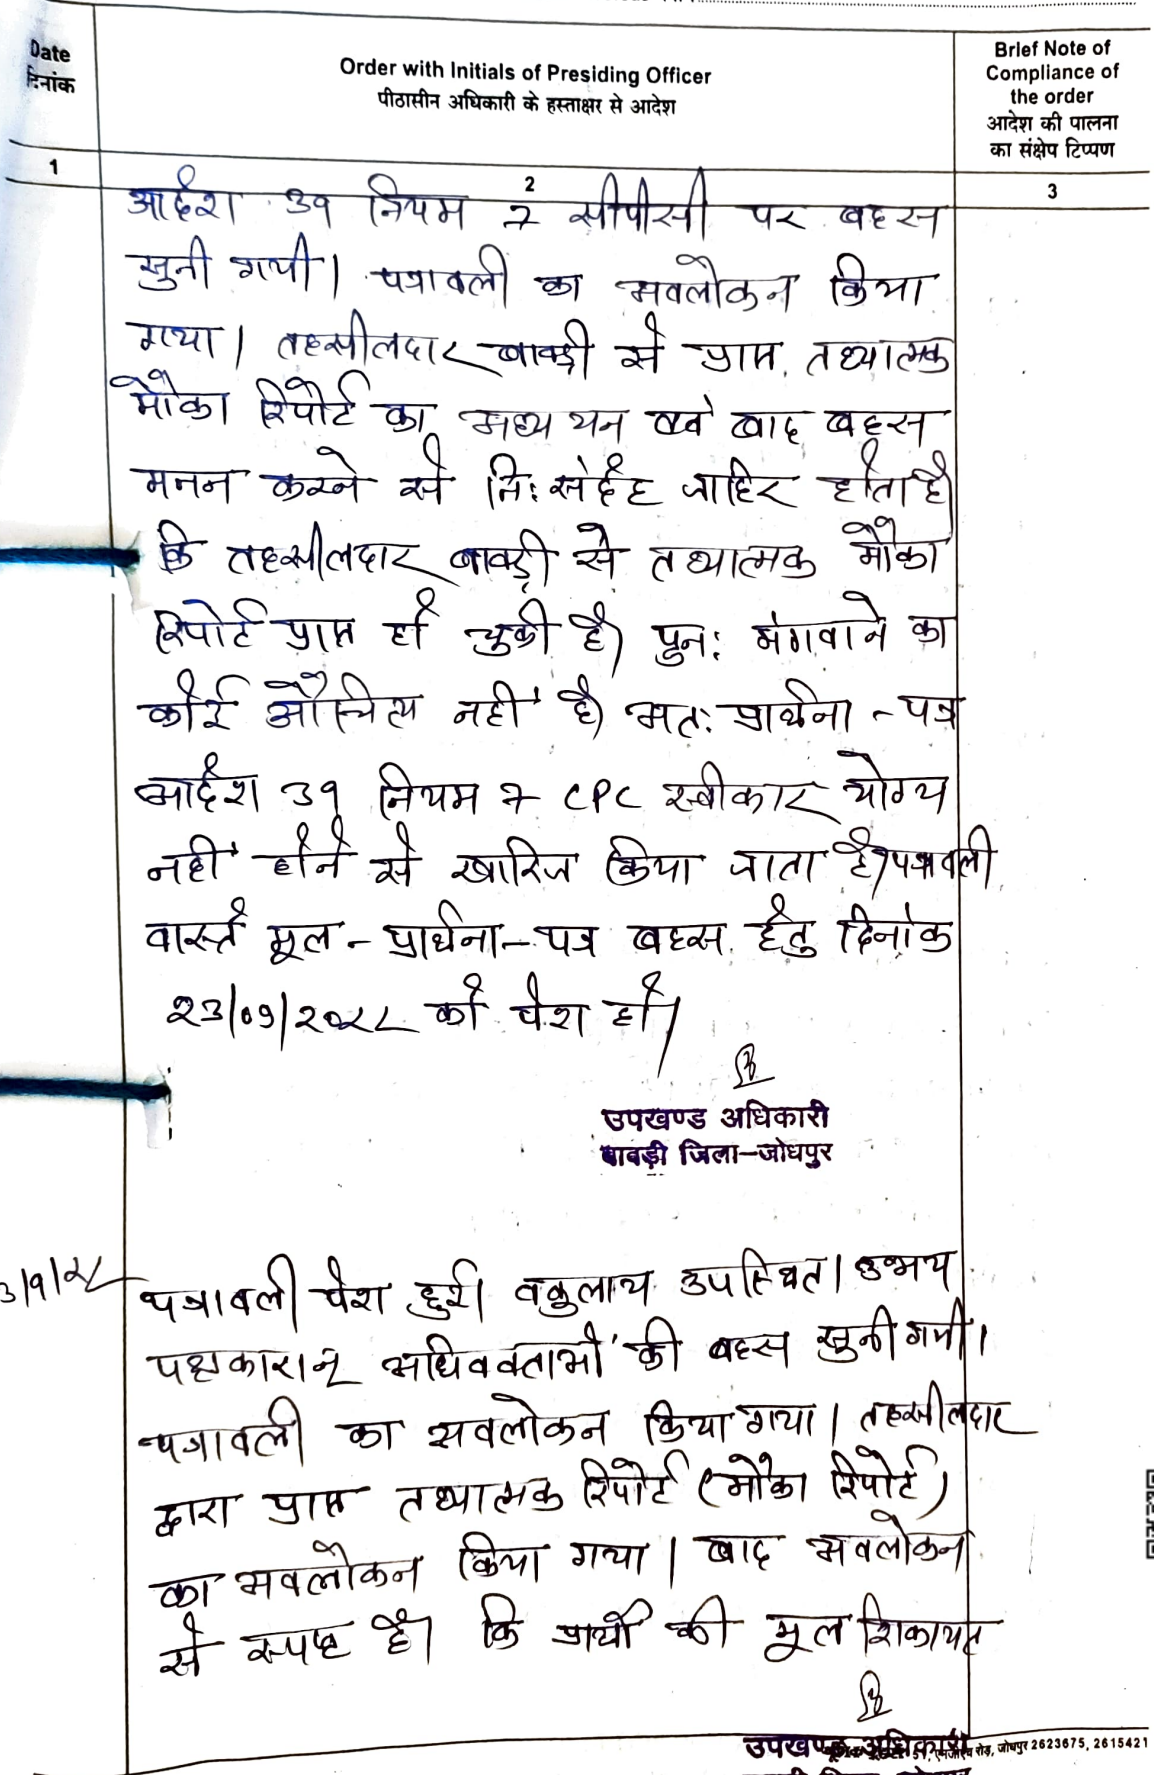 Date
दिनांक
Order with Initials of Presiding Officer
पीठासीन अधिकारी के हस्ताक्षर से आदेश
Brief Note of
Compliance of
the order
आदेश की पालना
का संक्षेप टिप्पण
1
2
3
आदेश 39 नियम 7 सीपीसी पर बहस
सुनी गयी। पत्रावली का अवलोकन किया
गया। तहसीलदार बावड़ी से प्राप्त तथ्यात्मक
मौका रिपोर्ट का अध्ययन एवं बाद बहस
मनन करने से निःसंदेह जाहिर होता है
कि तहसीलदार बावड़ी से तथ्यात्मक मौका
रिपोर्ट प्राप्त हो चुकी है। पुनः मंगवाने का
कोई औचित्य नहीं है। अतः प्रार्थना-पत्र
आदेश 39 नियम 7 CPC स्वीकार योग्य
नहीं होने से खारिज किया जाता है। पत्रावली
वास्ते मूल-प्रार्थना-पत्र बहस हेतु दिनांक
23/09/2022 को पेश हो।
उपखण्ड अधिकारी
बावड़ी जिला-जोधपुर
3/9/22
पत्रावली पेश हुई। वकुलाय उपस्थित। उभय
पक्षकारान् अधिवक्ताओं की बहस सुनी गयी।
पत्रावली का अवलोकन किया गया। तहसीलदार
द्वारा प्राप्त तथ्यात्मक रिपोर्ट (मौका रिपोर्ट)
का अवलोकन किया गया। बाद अवलोकन
से स्पष्ट है। कि प्रार्थी की मूल शिकायत
उपखण्ड अधिकारी
रोड, जोधपुर 2623675, 2615421